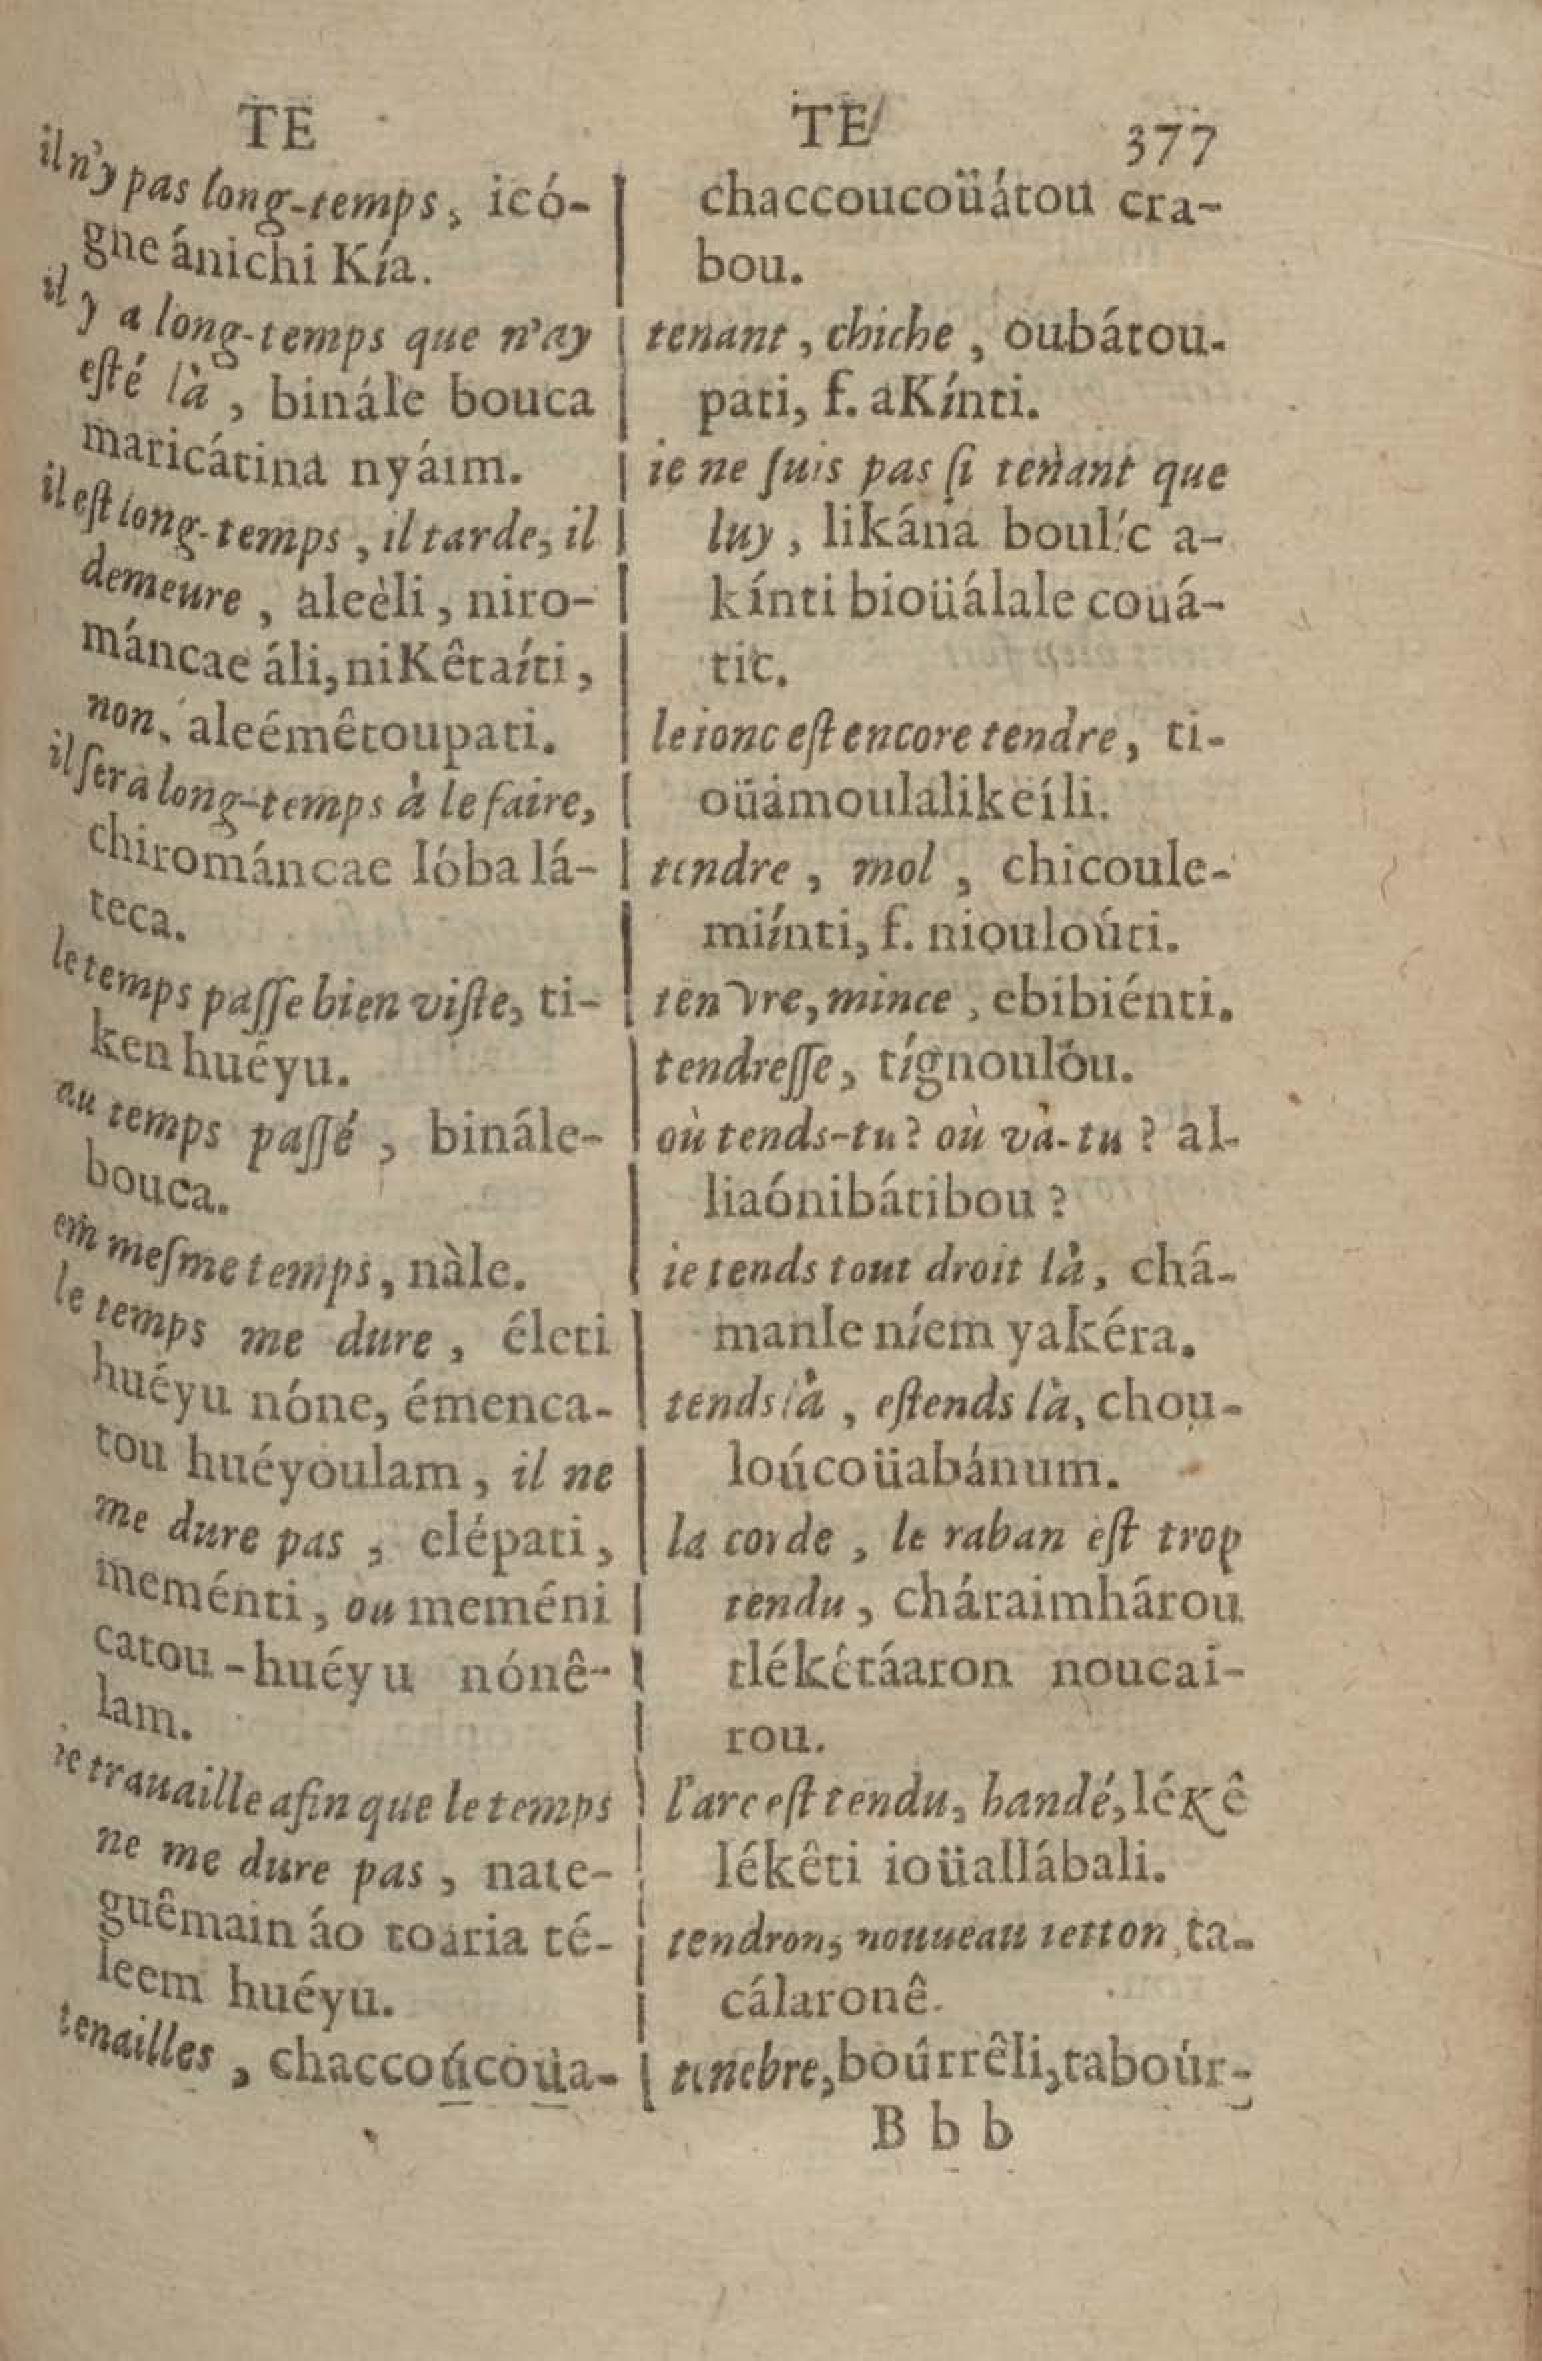 TE
il n'y pas long-temps, icó-
gne ánichi Kía.
il y a long-temps que n'ay
eſté là, binále bouca
maricátina nyáim.
il eſt long-temps, il tarde, il
demeure, aleèli, niro-
máncae áli, niKêtaíti,
non, aleémêtoupati.
il ſera long-temps à le faire,
chirománcae Ióba lá-
teca.
le temps paſſe bien viſte, ti-
ken huéyu.
au temps paſſé, binále-
bouca.
em meſme temps, nàle.
le temps me dure, életi
huéyu nóne, émenca-
tou huéyoulam, il ne
me dure pas, elépati,
meménti, ou meméni
catou-huéyu nónê-
lam.
ie trauaille afin que le temps
ne me dure pas, nate-
guêmain áo toaria té-
leem huéyu.
tenailles, chaccoúcoüa-
TE 377
chaccoucoüátou cra-
bou.
tenant, chiche, oubátou-
pati, f. aKínti.
ie ne ſuis pas ſi tenant que
luy, likána boulíc a-
kínti bioüálale coüá-
tic.
le ionc eſt encore tendre, ti-
oüámoulalikeíli.
tendre, mol, chicoule-
miínti, f. niouloúti.
tenVre, mince, ebibiénti.
tendreſſe, tígnoulou.
où tends-tu? où và-tu? al-
liaónibátibou?
ie tends tout droit là, chá-
manle níem yakéra.
tends là, eſtends là, chou-
loúcoüabánum.
la corde, le raban eſt trop
tendu, cháraimhárou
tlékêtáaron noucai-
rou.
l'arc eſt tendu, bandé, léKê
lékêti ioüallábali.
tendron, nouueau ietton, ta-
cálaronê.
tenebre, boúrrêli, taboúr-
B b b